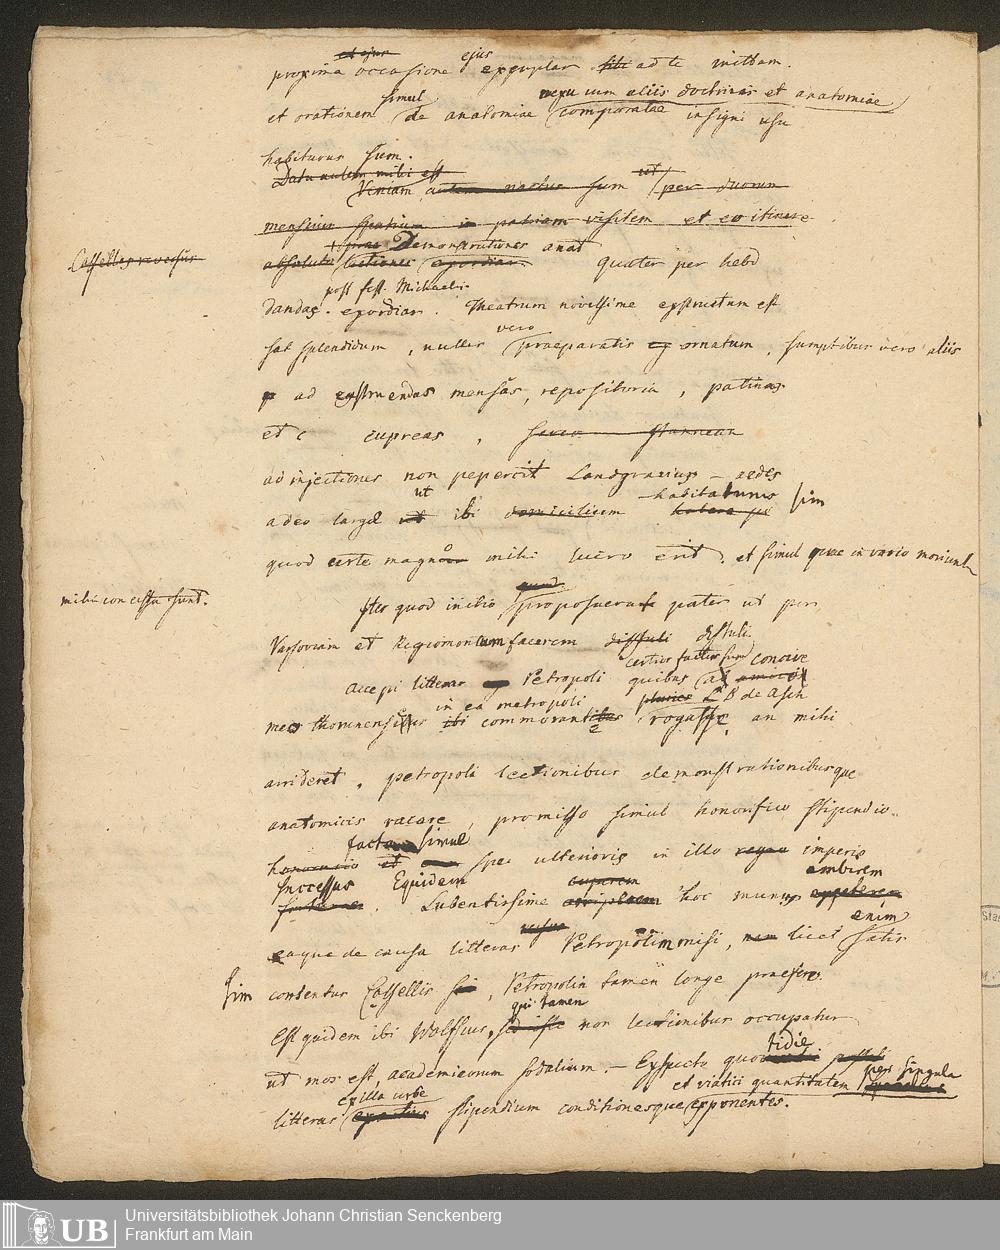 et ejus ejus
proxima occasione exemplar sibi ad te mittam.
simul nexu cum aliis doctrinis et anatomiae
et orationem de anatomiae comparatae insigni usu
habiturus sum.
Data autem mihi est
Veniam autem nactus sum ut per duorum
mensium spatium in patriam visitem et eo itinere
Demonstrationes anat
Cassellis reversus
absoluto lectiones exordiar quater per hebd
post fest. Michaelis
dandas. exordiar. Theatrum novissime exstructum est
vero
sat splendidum, nullis praeparatis ornatum, sumptibus vero aliis
ad exstruendas mensas, repositoria, patinas
et c cupreas,
ad injectiones non pepercit Landgravius – aedes
ut habitaturus sim
adeo largè ut ibi domicilium habere
quod certe magno mihi lucro erit. et simul quae in vario
mihi concessa sunt.
quod
Iter quod initio proposuerat pater ut per
Varsoviam et Regiomontum facerem distuli distuli
certior factus sum
Accepi litteras Petropoli quibus amico
in ea metropoli L B de Asch
meo thorunensi ibi commorante rogasse, an mihi
arrideret, petropoli lectionibus demonstrationibusque
anatomicis vacare, promisso simul honorifico stipendio
facta simul
honorario et spei ulterioris in illo regno imperio
successus Equidem ambirem
Lubentissime hoc munus appeterem
enim
eaque de causa litteras Petropolim misi, nam licet satis
sim contentus Cassellis, Petropolin tamen longe praefero.
qui tamen
Est quidem ibi Wolffius, sed iste non lectionibus occupatur
tidie
ut mos est, academicorum sodalium. – Exspecto quo
et viatici quantitatem per singula
ex illa urbe
litteras stipendium conditionesque exponentes.
Universitätsbibliothek Johann Christian Senckenberg
Frankfurt am Main
UB